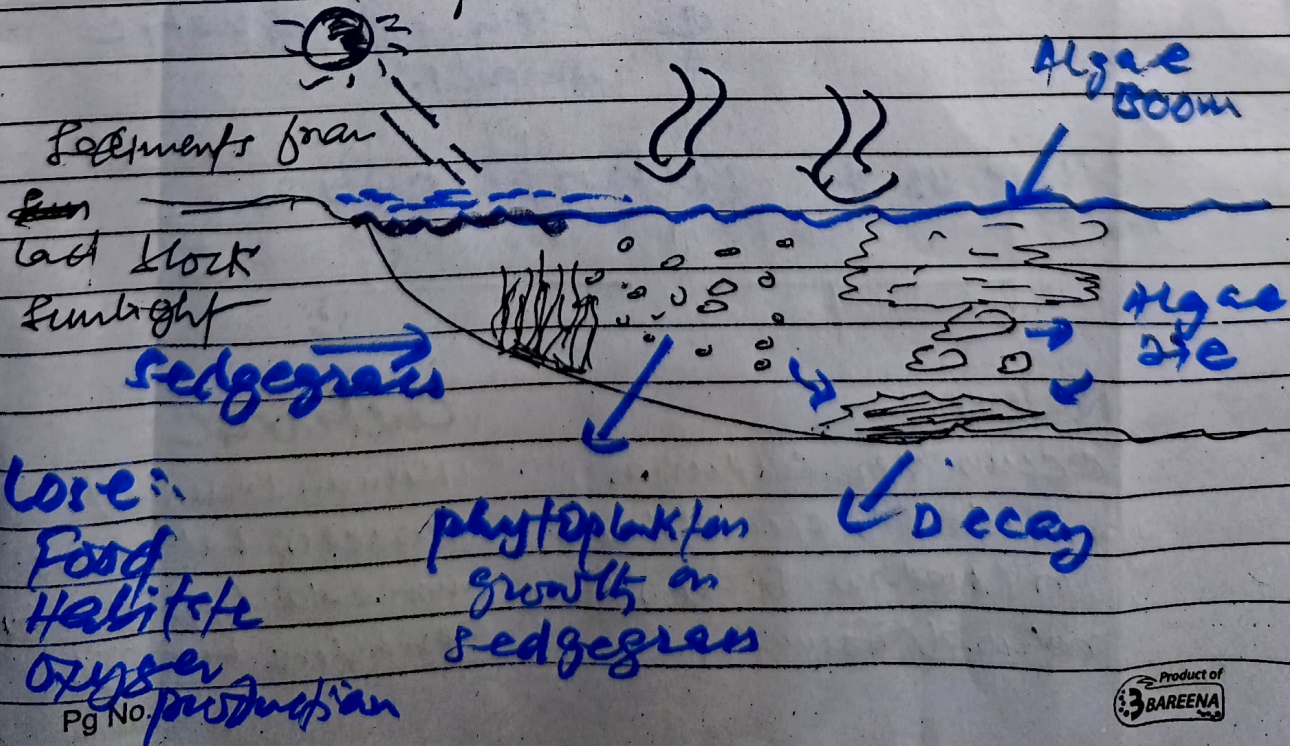 Algae
Boom
Sediments from
land block
Sunlight
Algae
die
Sedgegrass
Lose:
Food
Habitate
oxygen
production
phytoplankton
growth on
sedgegrass
Decay
Pg No.
Product of
BAREENA